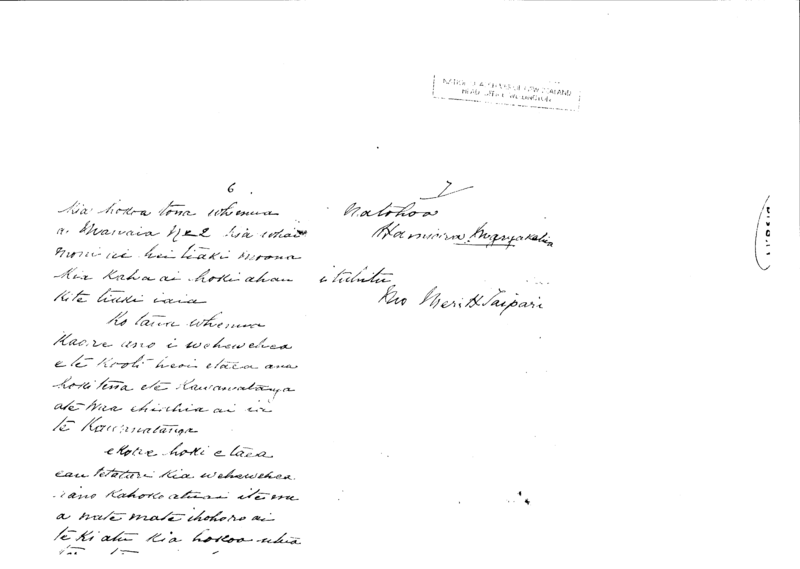 NATIONAL ARCHIVES OF NEW ZEALAND
HEAD OFFICE WELLINGTON
6
Kia hokoa tona whenua
a Mawaia No 2 kia whai
moni ai hei tiaki moona
kia kaha ai hoki ahau
kite tiaki iaia
Ko taua whenua
Kaore ano i wehewehea
e te Kooti heoi etaea ana
hoki tena ete Kawanatanga
ate hiahia ai
te Kawanatanga
ekore hoki e taea
eau tetatari kia wehewehea
rano kahoko atu ai
a nate mate ihohoro ai
te ki atu kia hokoa
7
Natohoa
Hamiora
i tuhitu
Meri H Taipari